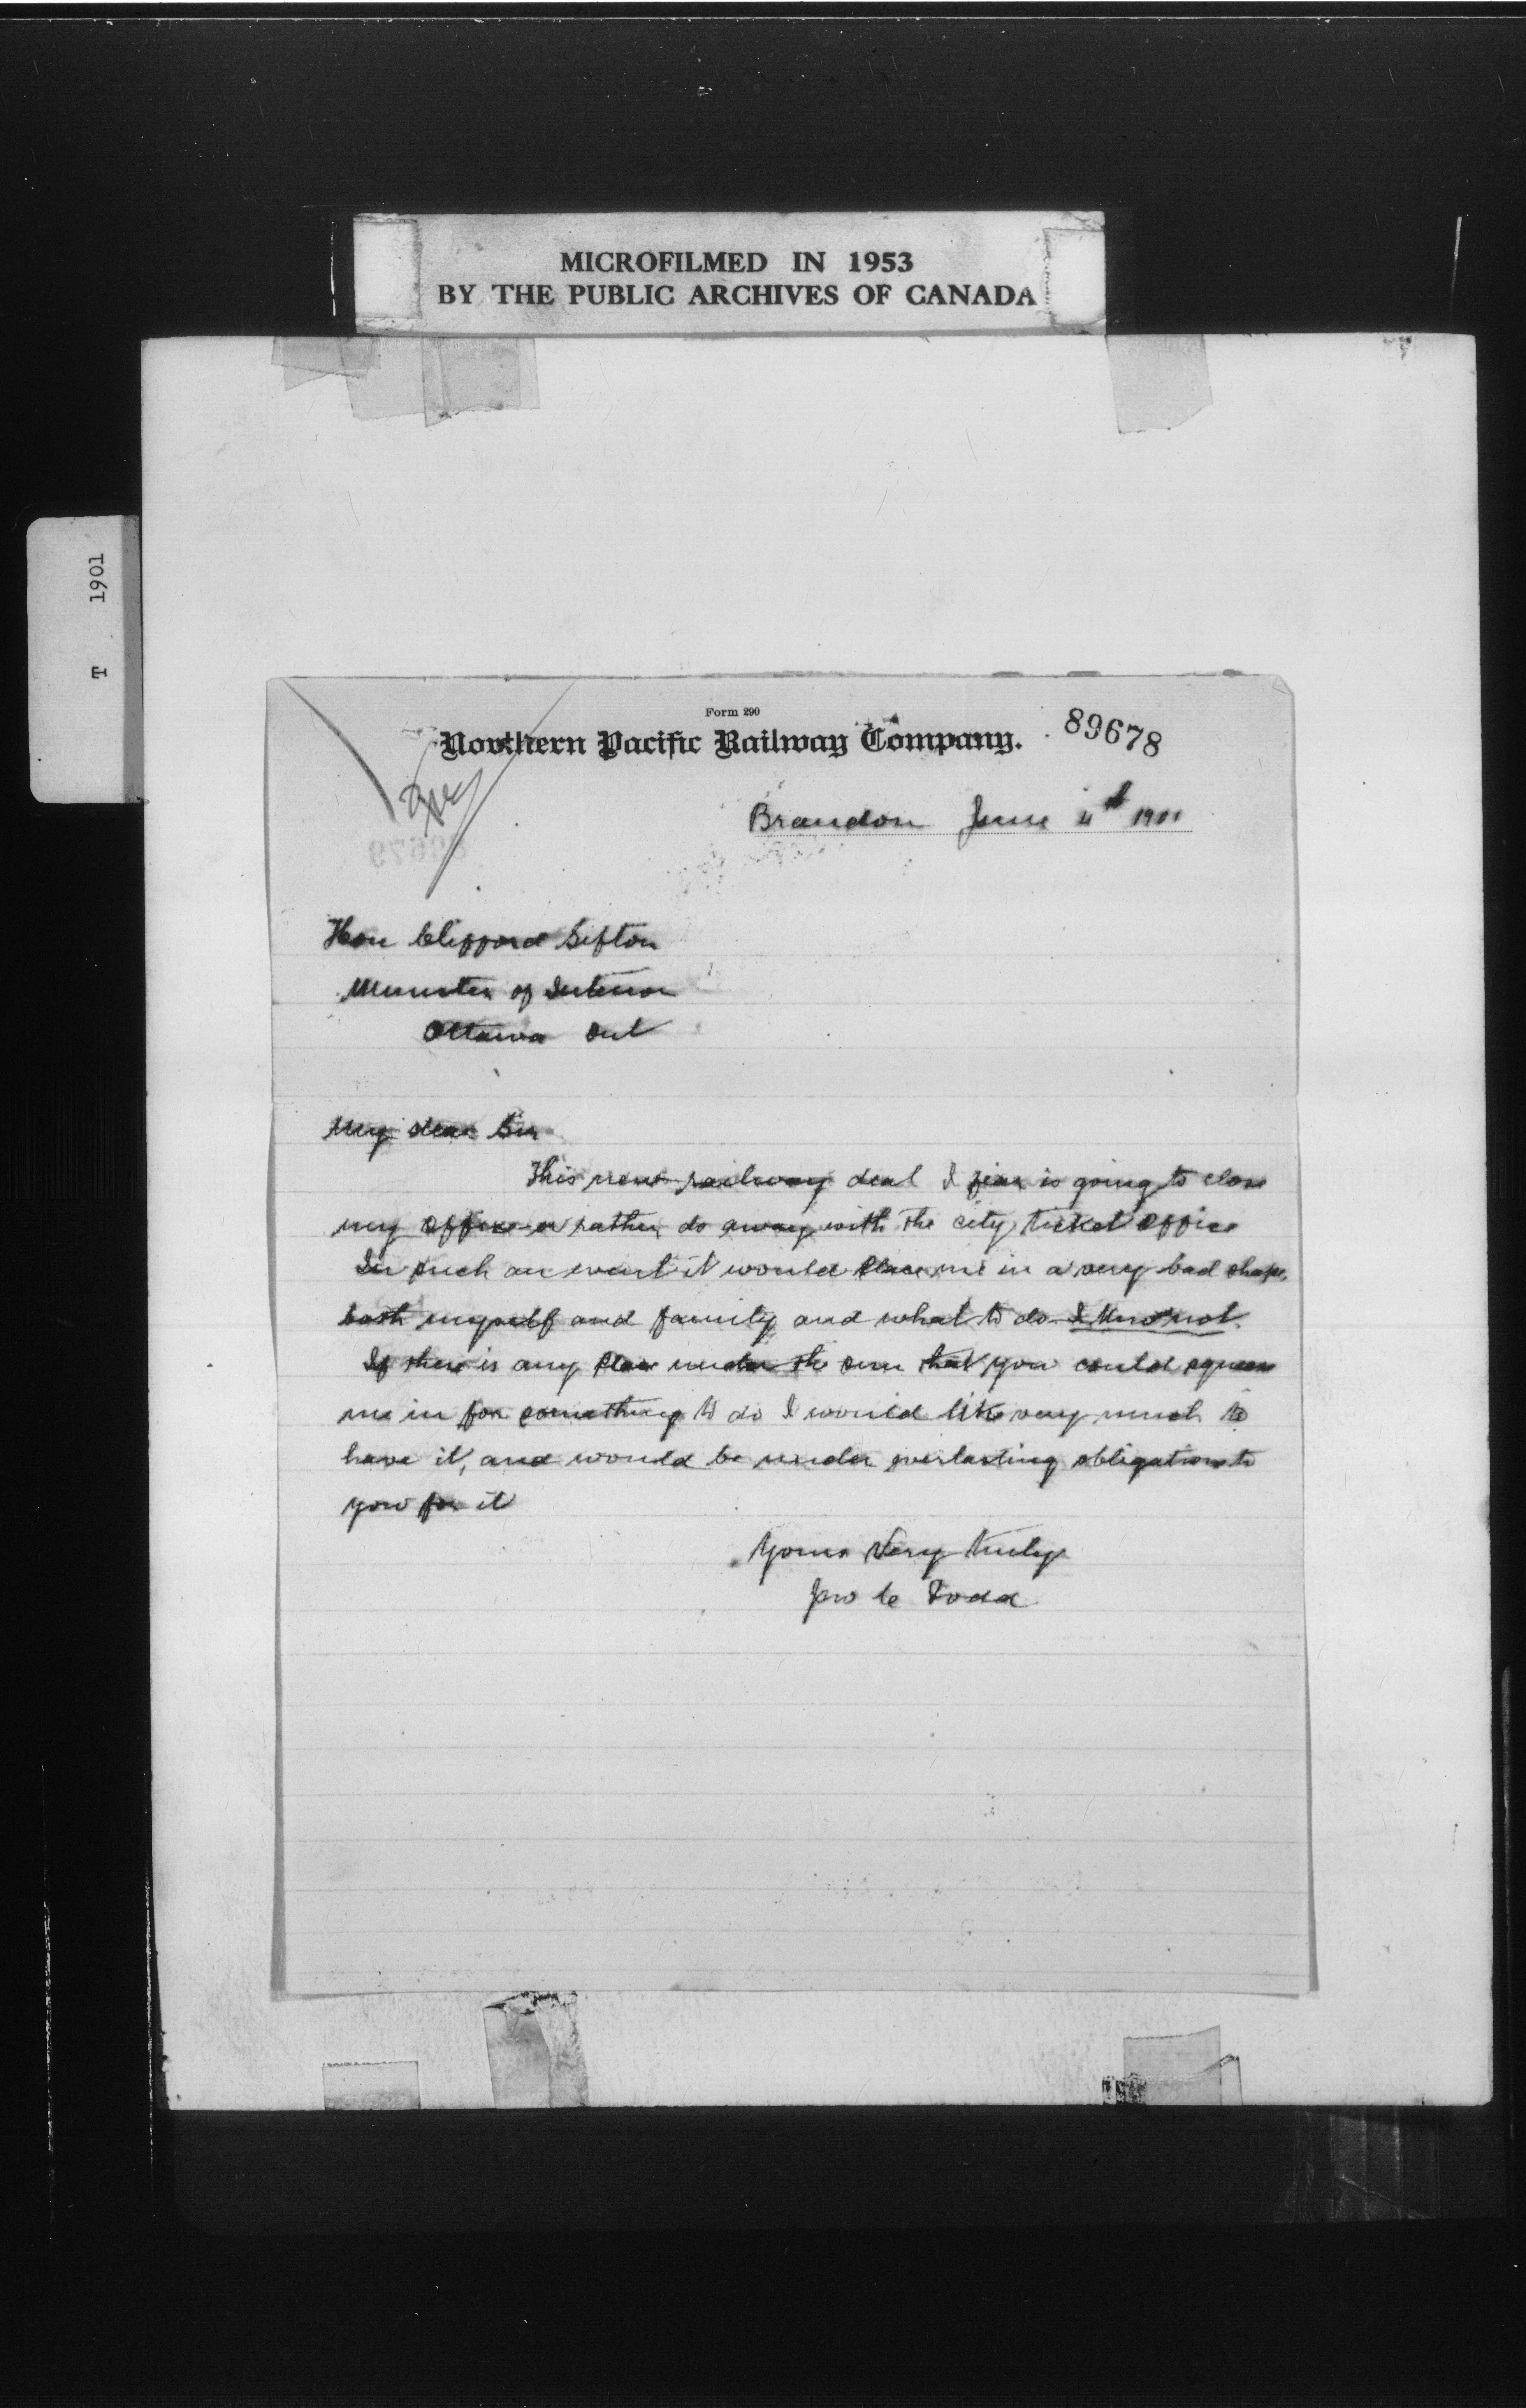 MICROFILMED IN 1953
BY THE PUBLIC ARCHIVES OF CANADA
T 1901
Form 290
Northern Pacific Railway Company.
89678
Brandon June 4th 1901
Hon Clifford Sifton
Minister of Interior
Ottawa Ont
My dear Sir
This new railway deal I fear is going to close
my office or rather do away with the city ticket office
In such an event it would place me in a very bad shape,
both myself and family and what to do I know not.
If there is any place under the sun that you could squeeze
me in for something to do I would like very much to
have it, and would be under everlasting obligations to
you for it
Yours Very truly
Jno C Todd